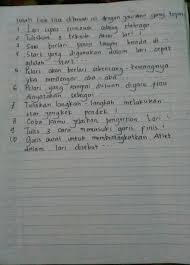 Isilah titik titik dibawah ini dengan jawaban yang tepat
1 Lari cepat termasuk cabang olahraga
2 Tuliskan 3 teknik dasar lari !
3 Saat berlari posisi tangan berada di
4 Start yang digunakan dalam lari cepat
adalah start
5 Pelari akan berlari sekencang-kencangnya
jika mendengar aba-aba
6 Pelari yang sampai duluan digaris finis
dinyatakan sebagai
7 Tuliskan langkah-langkah melakukan
start jongkok pendek
8 Coba kamu jelaskan pengertian lari !
9 Tulis 3 cara memasuki garis finis !
10 Garis awal untuk memberangkatkan Atlet
dalam lari disebut